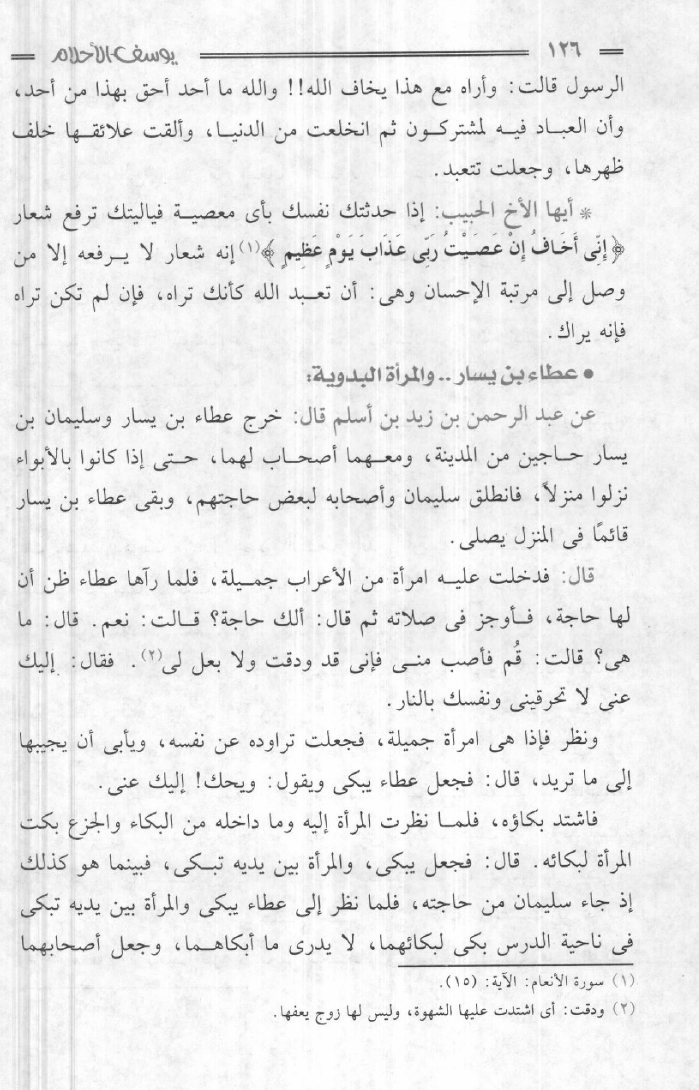 ١٢٦ يوسف الأحلام
الرسول قالت: وأراه مع هذا يخاف الله!! والله ما أحد أحق بهذا من أحد،
وأن العباد فيه لمشتركون ثم انخلعت من الدنيا، وألقت علائقها خلف
ظهرها، وجعلت تتعبد.
* أيها الأخ الحبيب: إذا حدثتك نفسك بأى معصية فياليتك ترفع شعار
﴿إِنِّى أَخَافُ إِنْ عَصَيْتُ رَبِّى عَذَابَ يَوْمٍ عَظِيمٍ﴾(١) إنه شعار لا يرفعه إلا من
وصل إلى مرتبة الإحسان وهى: أن تعبد الله كأنك تراه، فإن لم تكن تراه
فإنه يراك.
• عطاء بن يسار .. والمرأة البدوية:
عن عبد الرحمن بن زيد بن أسلم قال: خرج عطاء بن يسار وسليمان بن
يسار حاجين من المدينة، ومعهما أصحاب لهما، حتى إذا كانوا بالأبواء
نزلوا منزلاً، فانطلق سليمان وأصحابه لبعض حاجتهم، وبقى عطاء بن يسار
قائمًا فى المنزل يصلى.
قال: فدخلت عليه امرأة من الأعراب جميلة، فلما رآها عطاء ظن أن
لها حاجة، فأوجز فى صلاته ثم قال: ألك حاجة؟ قالت: نعم. قال: ما
هى؟ قالت: قُم فأصب منى فإنى قد ودقت ولا بعل لى(٢). فقال: إليك
عنى لا تحرقينى ونفسك بالنار.
ونظر فإذا هى امرأة جميلة، فجعلت تراوده عن نفسه، ويأبى أن يجيبها
إلى ما تريد، قال: فجعل عطاء يبكى ويقول: ويحك! إليك عنى.
فاشتد بكاؤه، فلما نظرت المرأة إليه وما داخله من البكاء والجزع بكت
المرأة لبكائه. قال: فجعل يبكى، والمرأة بين يديه تبكى، فبينما هو كذلك
إذ جاء سليمان من حاجته، فلما نظر إلى عطاء يبكى والمرأة بين يديه تبكى
فى ناحية الدرس بكى لبكائهما، لا يدرى ما أبكاهما، وجعل أصحابهما
(١) سورة الأنعام: الآية: (١٥).
(٢) ودقت: أى اشتدت عليها الشهوة، وليس لها زوج يعفها.